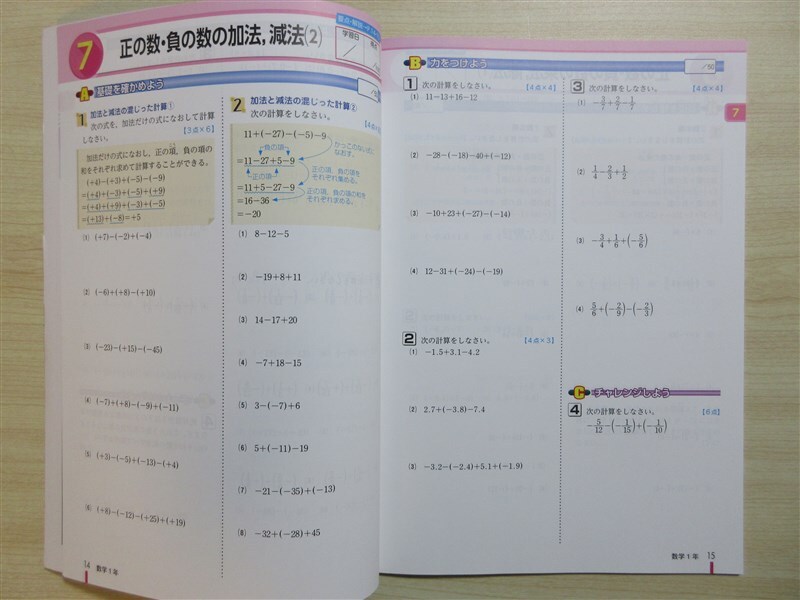 7
正の数・負の数の加法,減法(2)
要点・解説
学習日
A 基礎を確かめよう
1 加法と減法の混じった計算①
次の式を,加法だけの式になおして計算
しなさい。
【3点×6】
加法だけの式になおし,正の項,負の項の
和をそれぞれ求めて計算することができる。
(+4)-(+3)+(-5)-(-9)
=(+4)+(-3)+(-5)+(+9)
=(+4)+(+9)+(-3)+(-5)
=(+13)+(-8)=+5
(1) (+7)-(-2)+(-4)
(2) (-6)+(+8)-(+10)
(3) (-23)-(+15)-(-45)
(4) (-7)+(+8)-(-9)+(-11)
(5) (+3)-(-5)+(-13)-(+4)
(6) (+8)-(-12)-(+25)+(+19)
2 加法と減法の混じった計算②
次の計算をしなさい。
11+(-27)-(-5)-9
かっこのない式に
なおす。
負の項
=11-27+5-9
正の項
正の項,負の項を
それぞれ集める。
=11+5-27-9
正の項,負の項の和を
それぞれ求める。
=16-36
=-20
(1) 8-12-5
(2) -19+8+11
(3) 14-17+20
(4) -7+18-15
(5) 3-(-7)+6
(6) 5+(-11)-19
(7) -21-(-35)+(-13)
(8) -32+(-28)+45
14 数学1年
B 力をつけよう
/50
1 次の計算をしなさい。 【4点×4】
(1) 11-13+16-12
(2) -28-(-18)-40+(-12)
(3) -10+23+(-27)-(-14)
(4) 12-31+(-24)-(-19)
2 次の計算をしなさい。 【4点×3】
(1) -1.5+3.1-4.2
(2) 2.7+(-3.8)-7.4
(3) -3.2-(-2.4)+5.1+(-1.9)
3 次の計算をしなさい。 【4点×4】
(1)
(2) 1/4-2/3+1/2
(3) -3/4+1/6+(-5/6)
(4) 5/6+(-2/9)-(-2/3)
C チャレンジしよう
4 次の計算をしなさい。 【6点】
-5/12-(-1/15)+(-1/10)
7
数学1年 15